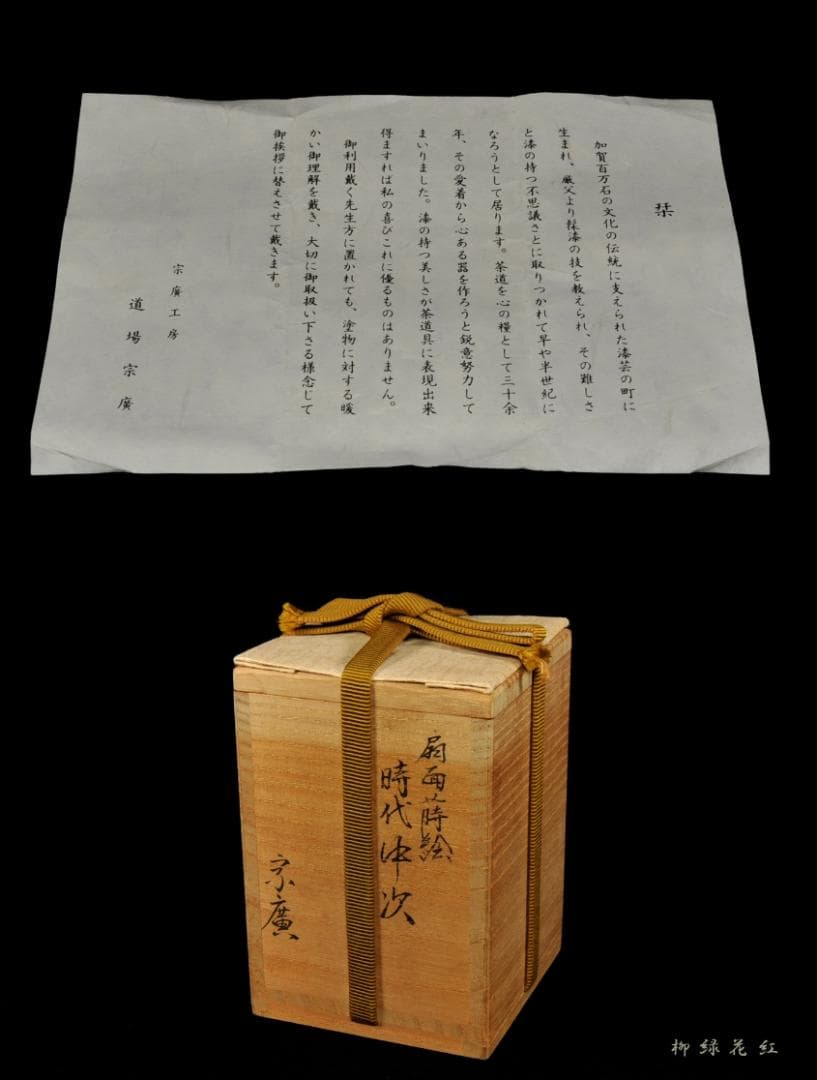 栞
加賀百万石の文化の伝統に支えられた漆芸の町に
生まれ、厳父より髹漆の技を教えられ、その難しさ
と漆の持つ不思議さとに取りつかれて早や半世紀に
なろうとして居ります。茶道を心の糧として三十余
年、その愛着から心ある器を作ろうと鋭意努力して
まいりました。漆の持つ美しさが茶道具に表現出来
得ますれば私の喜びこれに優るものはありません。
御利用戴く先生方に置かれても、塗物に対する暖
かい御理解を戴き、大切に御取扱い下さる様念じて
御挨拶に替えさせて戴きます。
宗廣工房
道場宗廣
扇面蒔絵
時代中次
宗廣
柳緑花紅